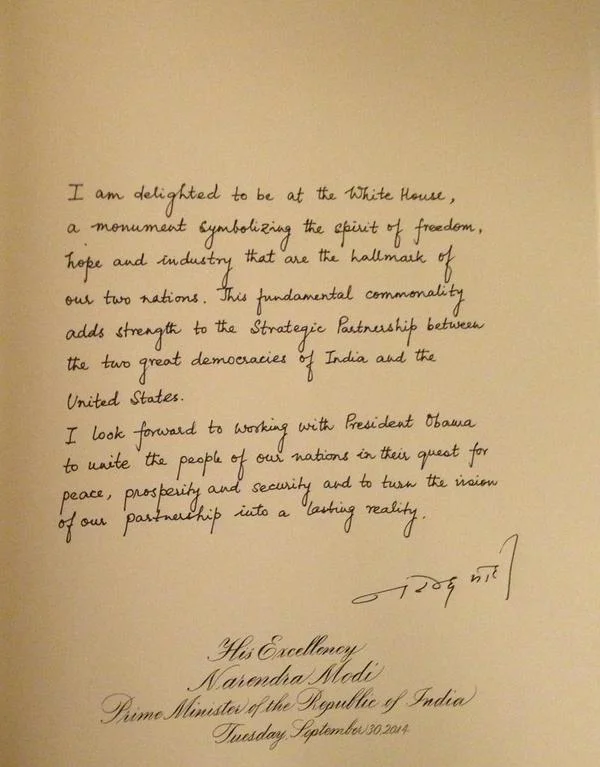 I am delighted to be at the White House,
a monument symbolizing the spirit of freedom,
hope and industry that are the hallmark of
our two nations. This fundamental commonality
adds strength to the Strategic Partnership between
the two great democracies of India and the
United States.
I look forward to working with President Obama
to unite the people of our nations in their quest for
peace, prosperity and security and to turn the vision
of our partnership into a lasting reality.
नरेन्द्र मोदी
His Excellency
Narendra Modi
Prime Minister of the Republic of India
Tuesday, September 30, 2014